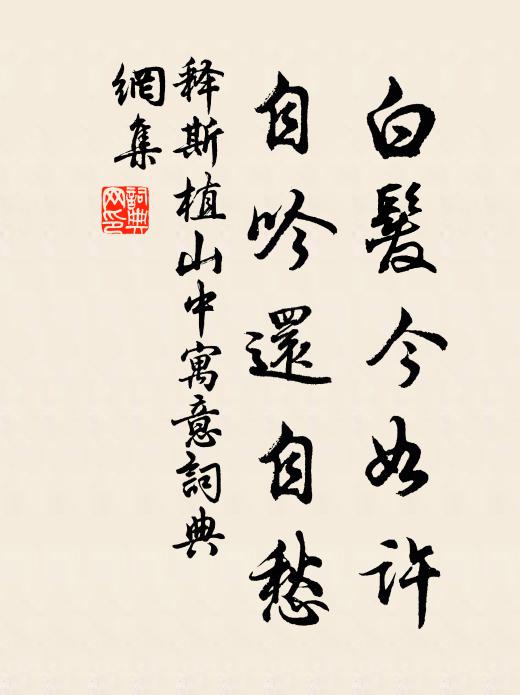 白髮今如許
自吟還自愁
释斯植山中寓意詞典
網集
詞典
网印